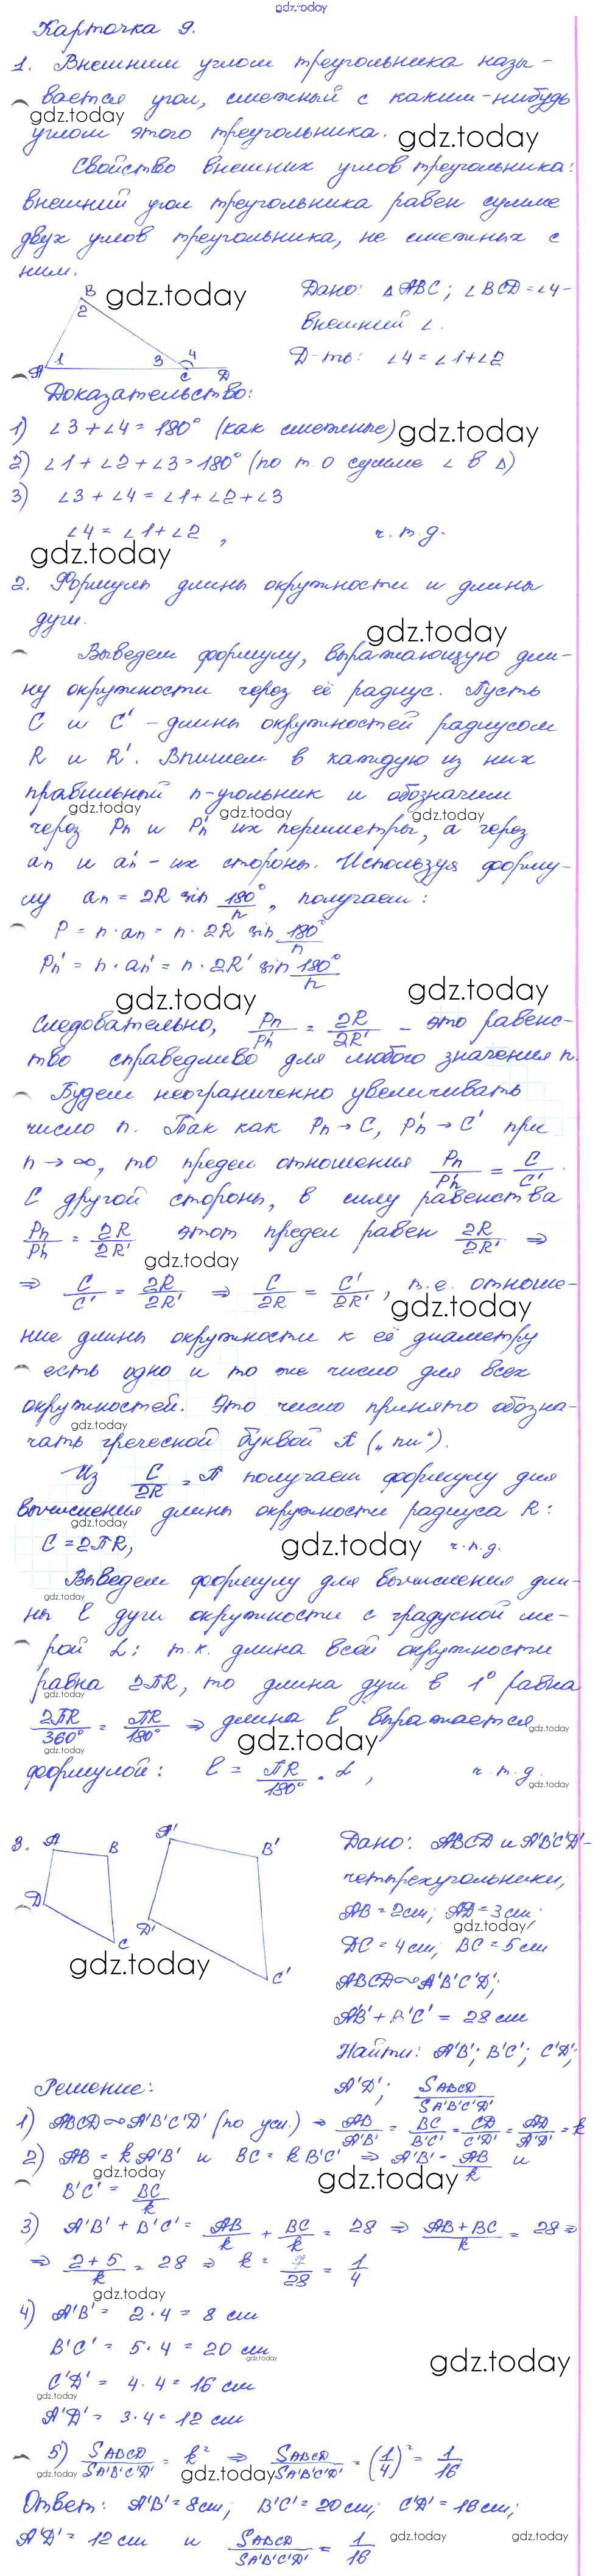 gdz.today
Карточка 9.
1. Внешним углом треугольника назы-
вается угол, смежный с каким-нибудь
gdz.today
углом этого треугольника. gdz.today
Свойство внешних углов треугольника:
внешний угол треугольника равен сумме
двух углов треугольника, не смежных с
ним.
gdz.today
B
2
A 1 3 4
C D
Дано: △ABC; ∠BCD=∠4-
внешний ∠.
Д-ть: ∠4=∠1+∠2
Доказательство:
1) ∠3+∠4=180° (как смежные) gdz.today
2) ∠1+∠2+∠3=180° (по т. о сумме ∠ в △)
3) ∠3+∠4=∠1+∠2+∠3
∠4=∠1+∠2, ч.т.д.
gdz.today
2. Формулы длины окружности и длины
дуги.
gdz.today
Выведем формулу, выражающую дли-
ну окружности через её радиус. Пусть
C и C' - длины окружностей радиусом
R и R'. Впишем в каждую из них
правильный n-угольник и обозначим
gdz.today gdz.today gdz.today
через Pn и Pn' их периметры, а через
an и an' - их стороны. Используя форму-
лу an = 2R sin 180°/n, получаем:
P = n·an = n·2R sin 180°/n
Pn' = n·an' = n·2R' sin 180°/n
gdz.today gdz.today
Следовательно, Pn/Pn' = 2R/2R' - это равенс-
тво справедливо для любого значения n.
Будем неограниченно увеличивать
число n. Так как Pn→C, Pn'→C' при
n→∞, то предел отношения Pn/Pn' = C/C'.
С другой стороны, в силу равенства
Pn/Pn' = 2R/2R' этот предел равен 2R/2R' ⇒
gdz.today
⇒ C/C' = 2R/2R' ⇒ C/2R = C'/2R', т.е. отноше-
gdz.today
ние длины окружности к её диаметру
есть одно и то же число для всех
окружностей. Это число принято обозна-
gdz.today
чать греческой буквой π („пи“).
Из C/2R = π получаем формулу для
вычисления длины окружности радиуса R:
gdz.today
C=2πR, gdz.today ч.т.д.
Выведем формулу для вычисления дли-
gdz.today
ны l дуги окружности с градусной ме-
рой α: т.к. длина всей окружности
равна 2πR, то длина дуги в 1° равна
gdz.today
2πR/360° = πR/180° ⇒ длина l выражается
gdz.today gdz.today gdz.today
формулой: l = πR/180° · α, ч.т.д.
gdz.today
3. A B
D
C
A' B'
D'
C'
gdz.today
Дано: ABCD и A'B'C'D'-
четырехугольники;
AB=2см; AD=3см;
gdz.today
DC=4см; BC=5см
ABCD∼A'B'C'D';
A'B'+B'C' = 28 см
Найти: A'B'; B'C'; C'D';
A'D'; SABCD/SA'B'C'D'
Решение:
1) ABCD∼A'B'C'D' (по усл.) ⇒ AB/A'B' = BC/B'C' = CD/C'D' = AD/A'D' = k
2) AB = kA'B' и BC = kB'C' ⇒ A'B' = AB/k и
gdz.today gdz.today
B'C' = BC/k
3) A'B' + B'C' = AB/k + BC/k = 28 ⇒ AB+BC/k = 28 ⇒
⇒ 2+5/k = 28 ⇒ k = 7/28 = 1/4
gdz.today
4) A'B' = 2·4 = 8 см
B'C' = 5·4 = 20 см
gdz.today gdz.today
C'D' = 4·4 = 16 см
gdz.today
A'D' = 3·4 = 12 см
5) SABCD/SA'B'C'D' = k² ⇒ SABCD/SA'B'C'D' = (1/4)² = 1/16
gdz.today gdz.today
Ответ: A'B'=8см; B'C'=20см; C'D'=16см;
A'D'=12см и SABCD/SA'B'C'D' = 1/16
gdz.today gdz.today